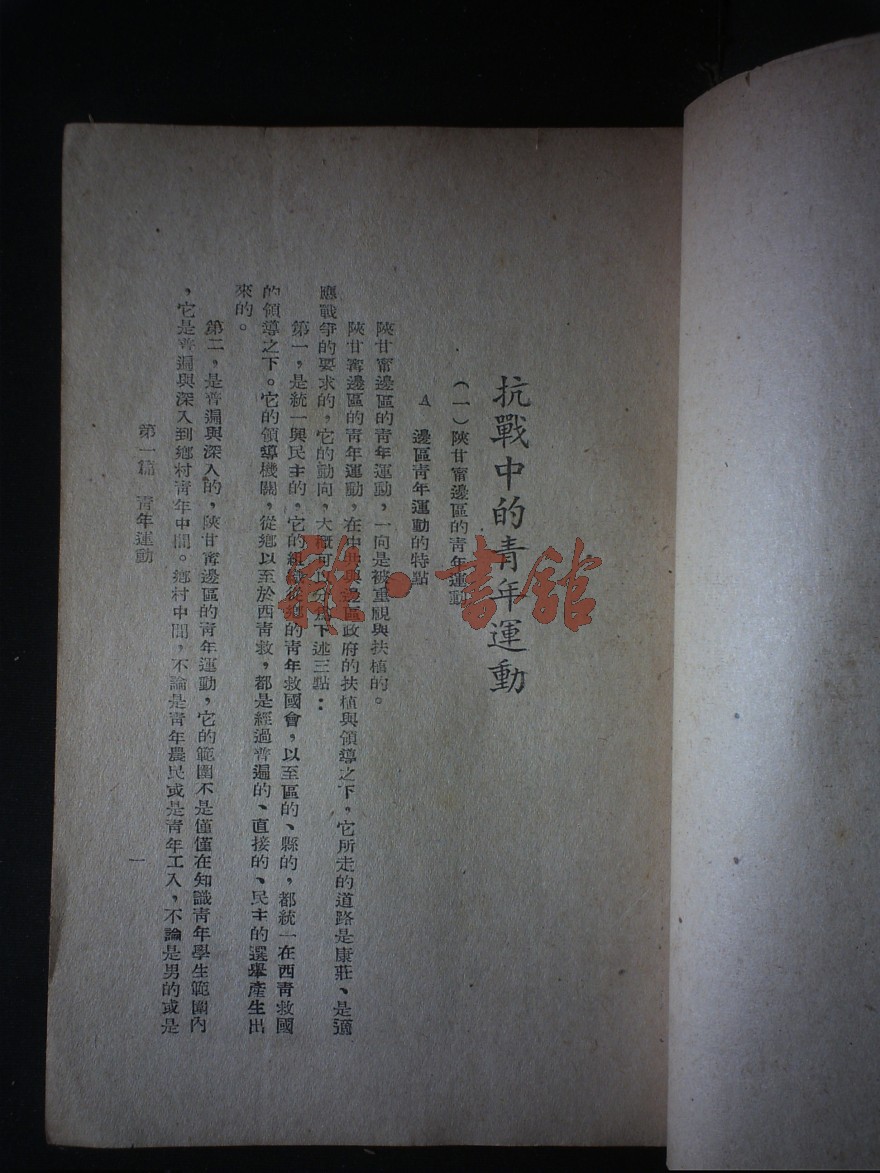 抗戰中的青年運動
（一）陝甘甯邊區的青年運動
A　邊區青年運動的特點
陝甘甯邊區的青年運動，一向是被重視與扶植的。
陝甘甯邊區的青年運動，在中共與邊區政府的扶植與領導之下，它所走的道路是康莊、是適
應戰爭的要求的，它的動向，大概可以分爲下述三點：
第一，是統一與民主的，它的組織從鄉的青年救國會，以至區的、縣的，都統一在西青救國
的領導之下。它的領導機關，從鄉以至於西青救，都是經過普遍的、直接的、民主的選舉產生出
來的。
第二，是普遍與深入的，陝甘甯邊區的青年運動，它的範圍不是僅僅在知識青年學生範圍內
，它是普遍與深入到鄉村青年中間。鄉村中間，不論是青年農民或是青年工人，不論是男的或是
第一篇　青年運動
一
·書館